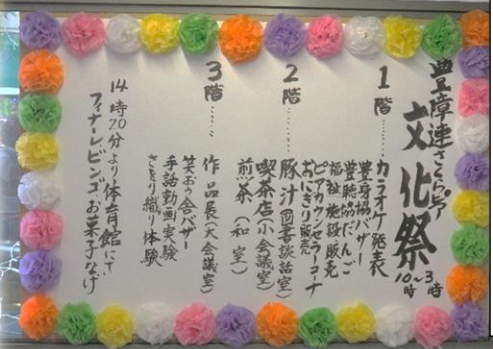 豊障連さくらピア
文化祭
10時~3時
1階……カラオケ発表
豊身協バザー
豊聴協だんご
福祉施設販売
おにぎり販売
ピアカウンセラーコーナ
2階……豚汁(図書談話室)
喫茶店(小会議室)
煎茶(和室)
3階……作品展(大会議室)
笑おう舎バザー
手話動画実験
さをり織り体験
14時20分より体育館にて
フィナーレビンゴお菓子なげ